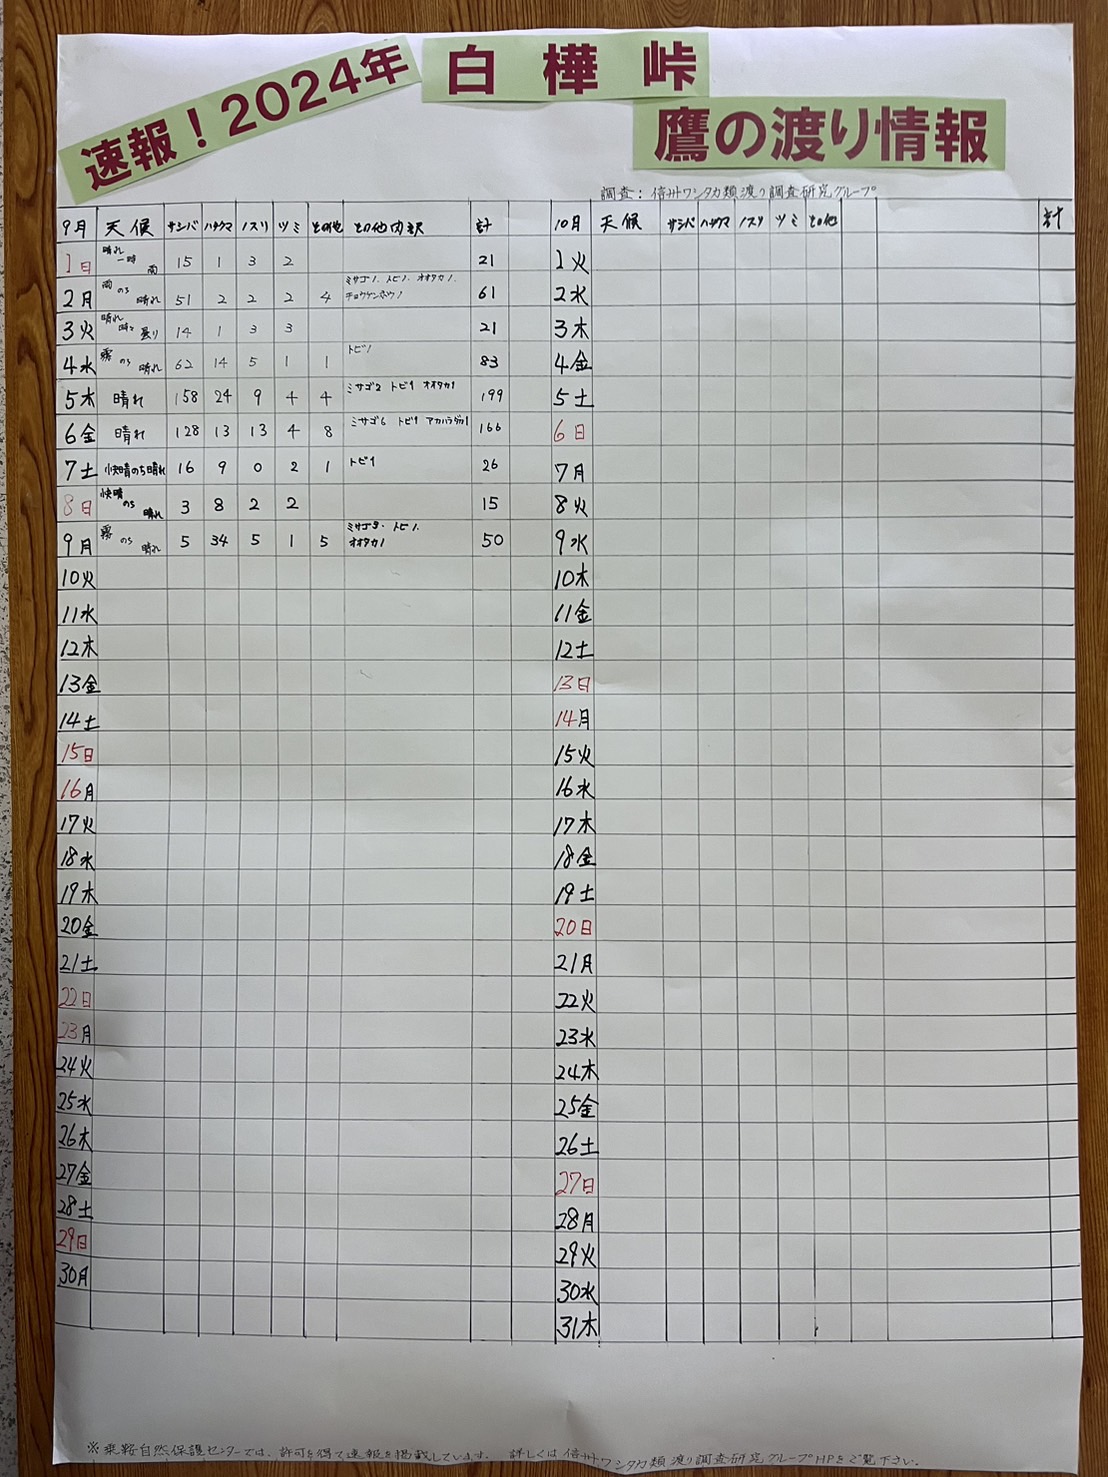 速報！2024年 白樺峠
鷹の渡り情報
調査：信州ワシタカ類渡り調査研究グループ
9月 天候 サシバ ハチクマ ノスリ ツミ その他 その他内訳 計
1日 晴れ一時雨 15 1 3 2 21
2月 雨のち晴れ 51 2 2 2 4 ミサゴ1、トビ1、オオタカ1、チョウゲンボウ1 61
3火 晴れ時々曇り 14 1 3 3 21
4水 霧のち晴れ 62 14 5 1 1 トビ1 83
5木 晴れ 158 24 9 4 4 ミサゴ2 トビ1 オオタカ1 199
6金 晴れ 128 13 13 4 8 ミサゴ6 トビ1 アカハラダカ1 166
7土 快晴のち晴れ 16 9 0 2 1 トビ1 26
8日 快晴のち晴れ 3 8 2 2 15
9月 霧のち晴れ 5 34 5 1 5 ミサゴ3・トビ1、オオタカ1 50
10火
11水
12木
13金
14土
15日
16月
17火
18水
19木
20金
21土
22日
23月
24火
25水
26木
27金
28土
29日
30月
10月 天候 サシバ ハチクマ ノスリ ツミ その他 計
1火
2水
3木
4金
5土
6日
7月
8火
9水
10木
11金
12土
13日
14月
15火
16水
17木
18金
19土
20日
21月
22火
23水
24木
25金
26土
27日
28月
29火
30水
31木
※乗鞍自然保護センターでは、許可を得て速報を掲載しています。 詳しくは信州ワシタカ類渡り調査研究グループHPをご覧下さい。